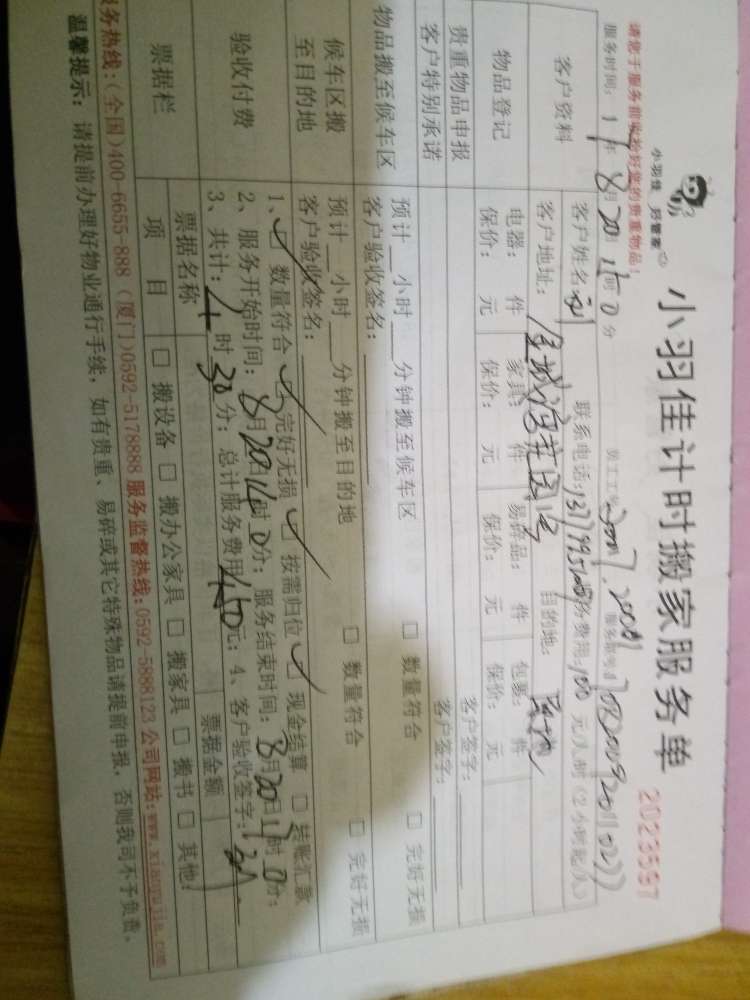 小羽佳 好管家
小羽佳计时搬家服务单
2023597
请您于服务前收捡好您的贵重物品!
服务时间: 年 8月20日 时0分
客户资料
客户姓名: 联系电话: 服务费用:100元/人/时(2小时起/人)
客户地址: 目的地:
物品登记
电器: 件 家具: 件 易碎品: 件 包裹: 件
保价: 元 保价: 元 保价: 元 保价: 元
贵重物品申报 客户签字:
客户特别承诺 客户签字:
物品搬至候车区
预计__小时___分钟搬至候车区 □ 数量符合 □ 完好无损
客户验收签名:
候车区搬至目的地
预计__小时___分钟搬至目的地 □ 数量符合 □ 完好无损
客户验收签名:
验收付费
1、□ 数量符合 □ 完好无损 □ 按需归位 □ 现金结算 □ 转账汇款
2、服务开始时间: 8月20日14时0分; 服务结束时间: 8月20日 时0分;
3、共计: 时30分; 总计服务费用450元; 4、客户验收签字:
票据栏
票据名称 票据金额
项 目 □ 搬设备 □ 搬办公家具 □ 搬家具 □ 搬书 □ 其他:
服务热线:(全国)400-6655-888 (厦门)0592-5178888 服务监督热线:0592-5888123 公司网站:www.xiaoyujia.com
温馨提示: 请提前办理好物业通行手续, 如有贵重、易碎或其它特殊物品请提前申报, 否则我司不予负责。